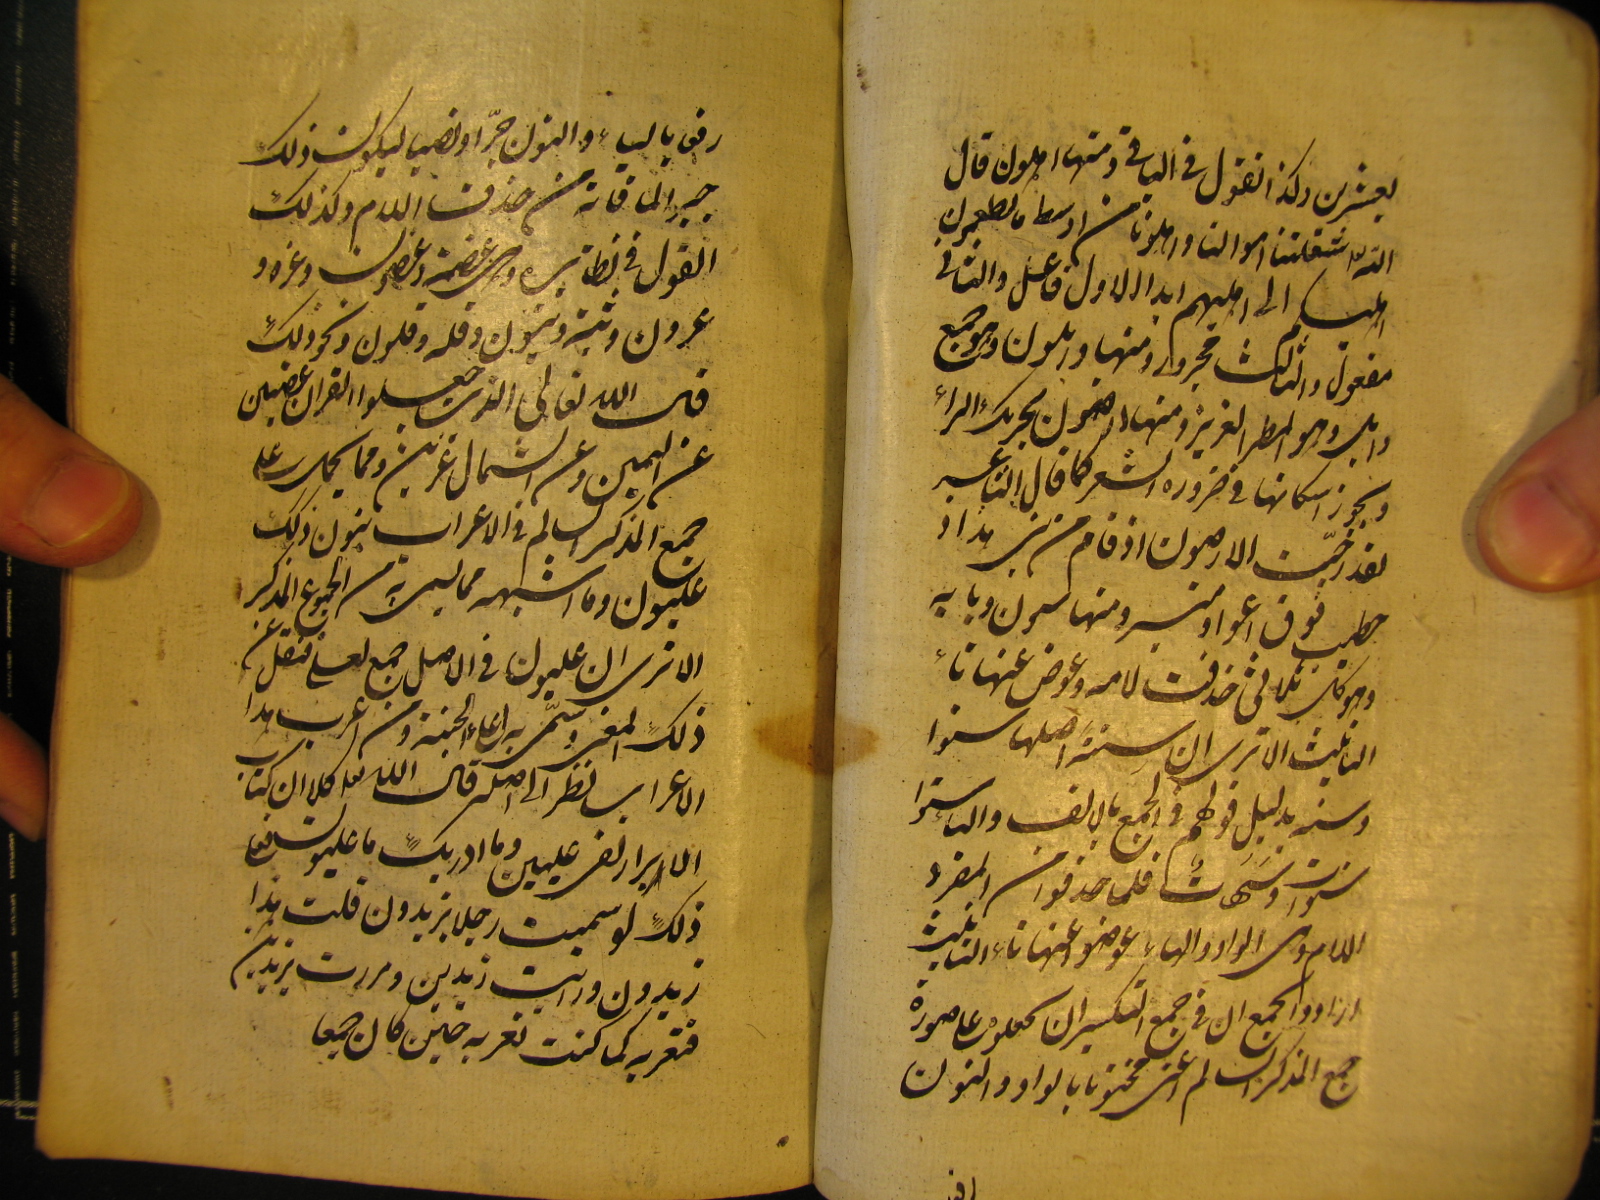 بعشرين وكذا نقول في الباقي ومنها اهلون قال
الله شغلتنا اموالنا واهلونا من اوسط ما تطعمون
اهليكم الى اهليهم ابدا الاول فاعل والثاني
مفعول والثالث مجرور ومنها وابلون وهو جمع
وابل وهو المطر الغزير ومنها ارضون بتحريك الراء
ويجوز اسكانها في ضرورة الشعر كما قال الشاعر
لقد ضجت الارضون اذ قام من بني هداد
خطيب فوق اعواد منبر ومنها سنون وبابه
وهو كل ثلاثي حذفت لامه وعوض عنها تاء
التانيث الا ترى ان سنة اصلها سنوا
وسنه بدليل قولهم في الجمع بالالف والتاء
سنوات وسنهات فلما حذفوا من المفرد
اللام وهي الواو والهاء عوضوا عنها تاء التانيث
ارادوا في جمع التكسير ان يجعلوه على صورة
جمع المذكر السالم اعني مختوما بالواو والنون
رفعا بالياء والنون جرا ونصبا ليكون ذلك
جبرا لما فاته من حذف اللام وكذلك
القول في نظائره وهي عضة وعضون وعزه و
عزون وثبة وثبون وقله وقلون ونحو ذلك
قال الله تعالى الذين جعلوا القران عضين
عن اليمين وعن الشمال عزين ومما يحمل على
جمع المذكر السالم في الاعراب بنون ذلك
عليون وما اشبهه مما سمي به من الجموع المذكر
الا ترى ان عليون في الاصل جمع لعلي فنقل عن
ذلك المعنى وسمي به اعلى الجنة ومن اعرب هذا
الاعراب نظرا الى اصله قال الله تعالى كلا ان كتاب
الابرار لفي عليين وما ادريك ما عليون فعلى
ذلك لو سميت رجلا بزيدون قلت هذا
زيدون ورايت زيدين ومررت بزيدين
فتعربه كما كنت تعربه حين كان جمعا